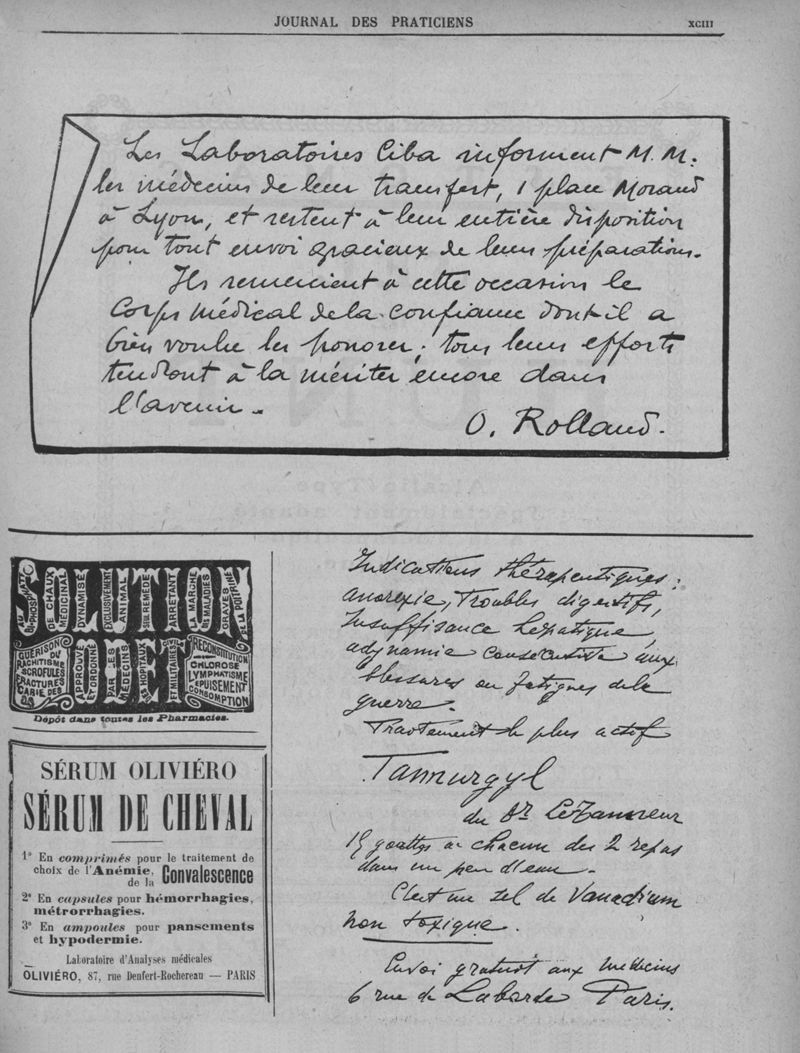 JOURNAL DES PRATICIENS
XCIII
Les Laboratoires Ciba informent M.M.
les médecins de leur transfert, 1 place Morand
à Lyon, et restent à leur entière disposition
pour tout envoi gracieux de leurs préparations.
Ils remercient à cette occasion le
Corps Médical de la confiance dont il a
bien voulu les honorer; tous leurs efforts
tendront à la mériter encore dans
l'avenir.
O. Rolland.
SOLUTION
AU
BI-PHOSPHATE
DE CHAUX
MÉDICINAL
DYNAMISÉ
EXCLUSIVEMENT
ANIMAL
SEUL REMÈDE
ARRETANT
LA MARCHE
DES MALADIES
GRAVES
DE LA POITRINE
GUÉRISON
DU
RACHITISME
SCROFULES
FRACTURES
CARIE DES
OS
APPROUVÉ
ET ORDONNÉ
PAR LES
MÉDECINS
DES HOPITAUX
ET MILITAIRES
RECONSTITUTION
CHLOROSE
LYMPHATISME
EPUISEMENT
CONSOMPTION
Dépôt dans toutes les Pharmacies.
SÉRUM OLIVIÉRO
SÉRUM DE CHEVAL
1° En comprimés pour le traitement de
choix de l'Anémie, de la Convalescence
2° En capsules pour hémorrhagies,
métrorrhagies.
3° En ampoules pour pansements
et hypodermie.
Laboratoire d'Analyses médicales
OLIVIÉRO, 87, rue Denfert-Rochereau — PARIS
Indications thérapeutiques:
anorexie, Troubles digestifs,
Insuffisance hépatique,
adynamie consécutive aux
blessures ou fatigues de la
guerre.
Traitement le plus actif
Tannurgyl
du Dr Le Tanneur
15 gouttes à chacun des 2 repas
dans un peu d'eau.
C'est un sel de Vanadium
non toxique.
Envoi gratuit aux médecins
6 rue de Laborde Paris.